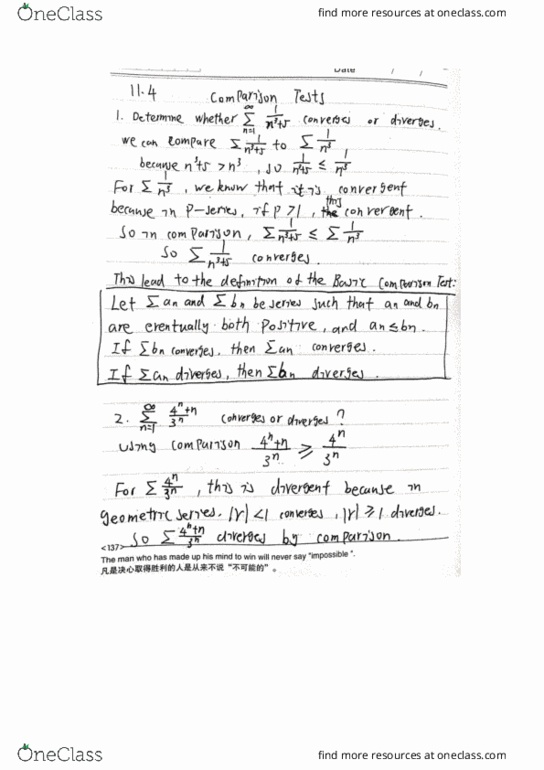 OneClass
find more resources at oneclass.com
Date / /
11.4 Comparison Tests
1. Determine whether ∞ Σ n=1 1/n³+5 converges or diverges.
we can compare Σ 1/n³+5 to Σ 1/n³
because n³+5 > n³, so 1/n³+5 ≤ 1/n³
For Σ 1/n³, we know that it is convergent
because in P-series, if P>1, this convergent.
So in comparison, Σ 1/n³+5 ≤ Σ 1/n³
So Σ 1/n³+5 converges.
This lead to the definition of the Basic Comparison Test:
Let Σan and Σbn be series such that an and bn
are eventually both positive, and an≤bn.
If Σbn converges, then Σan converges.
If Σan diverges, then Σbn diverges.
2. ∞ Σ n=1 4ⁿ+n/3ⁿ converges or diverges?
using comparison 4ⁿ+n/3ⁿ ≥ 4ⁿ/3ⁿ
For Σ 4ⁿ/3ⁿ, this is divergent because in
geometric series, |r|<1 converges, |r|≥1 diverges.
So Σ 4ⁿ+n/3ⁿ diverges by comparison.
<137>
The man who has made up his mind to win will never say "impossible".
凡是决心取得胜利的人是从来不说“不可能的”。
OneClass
find more resources at oneclass.com